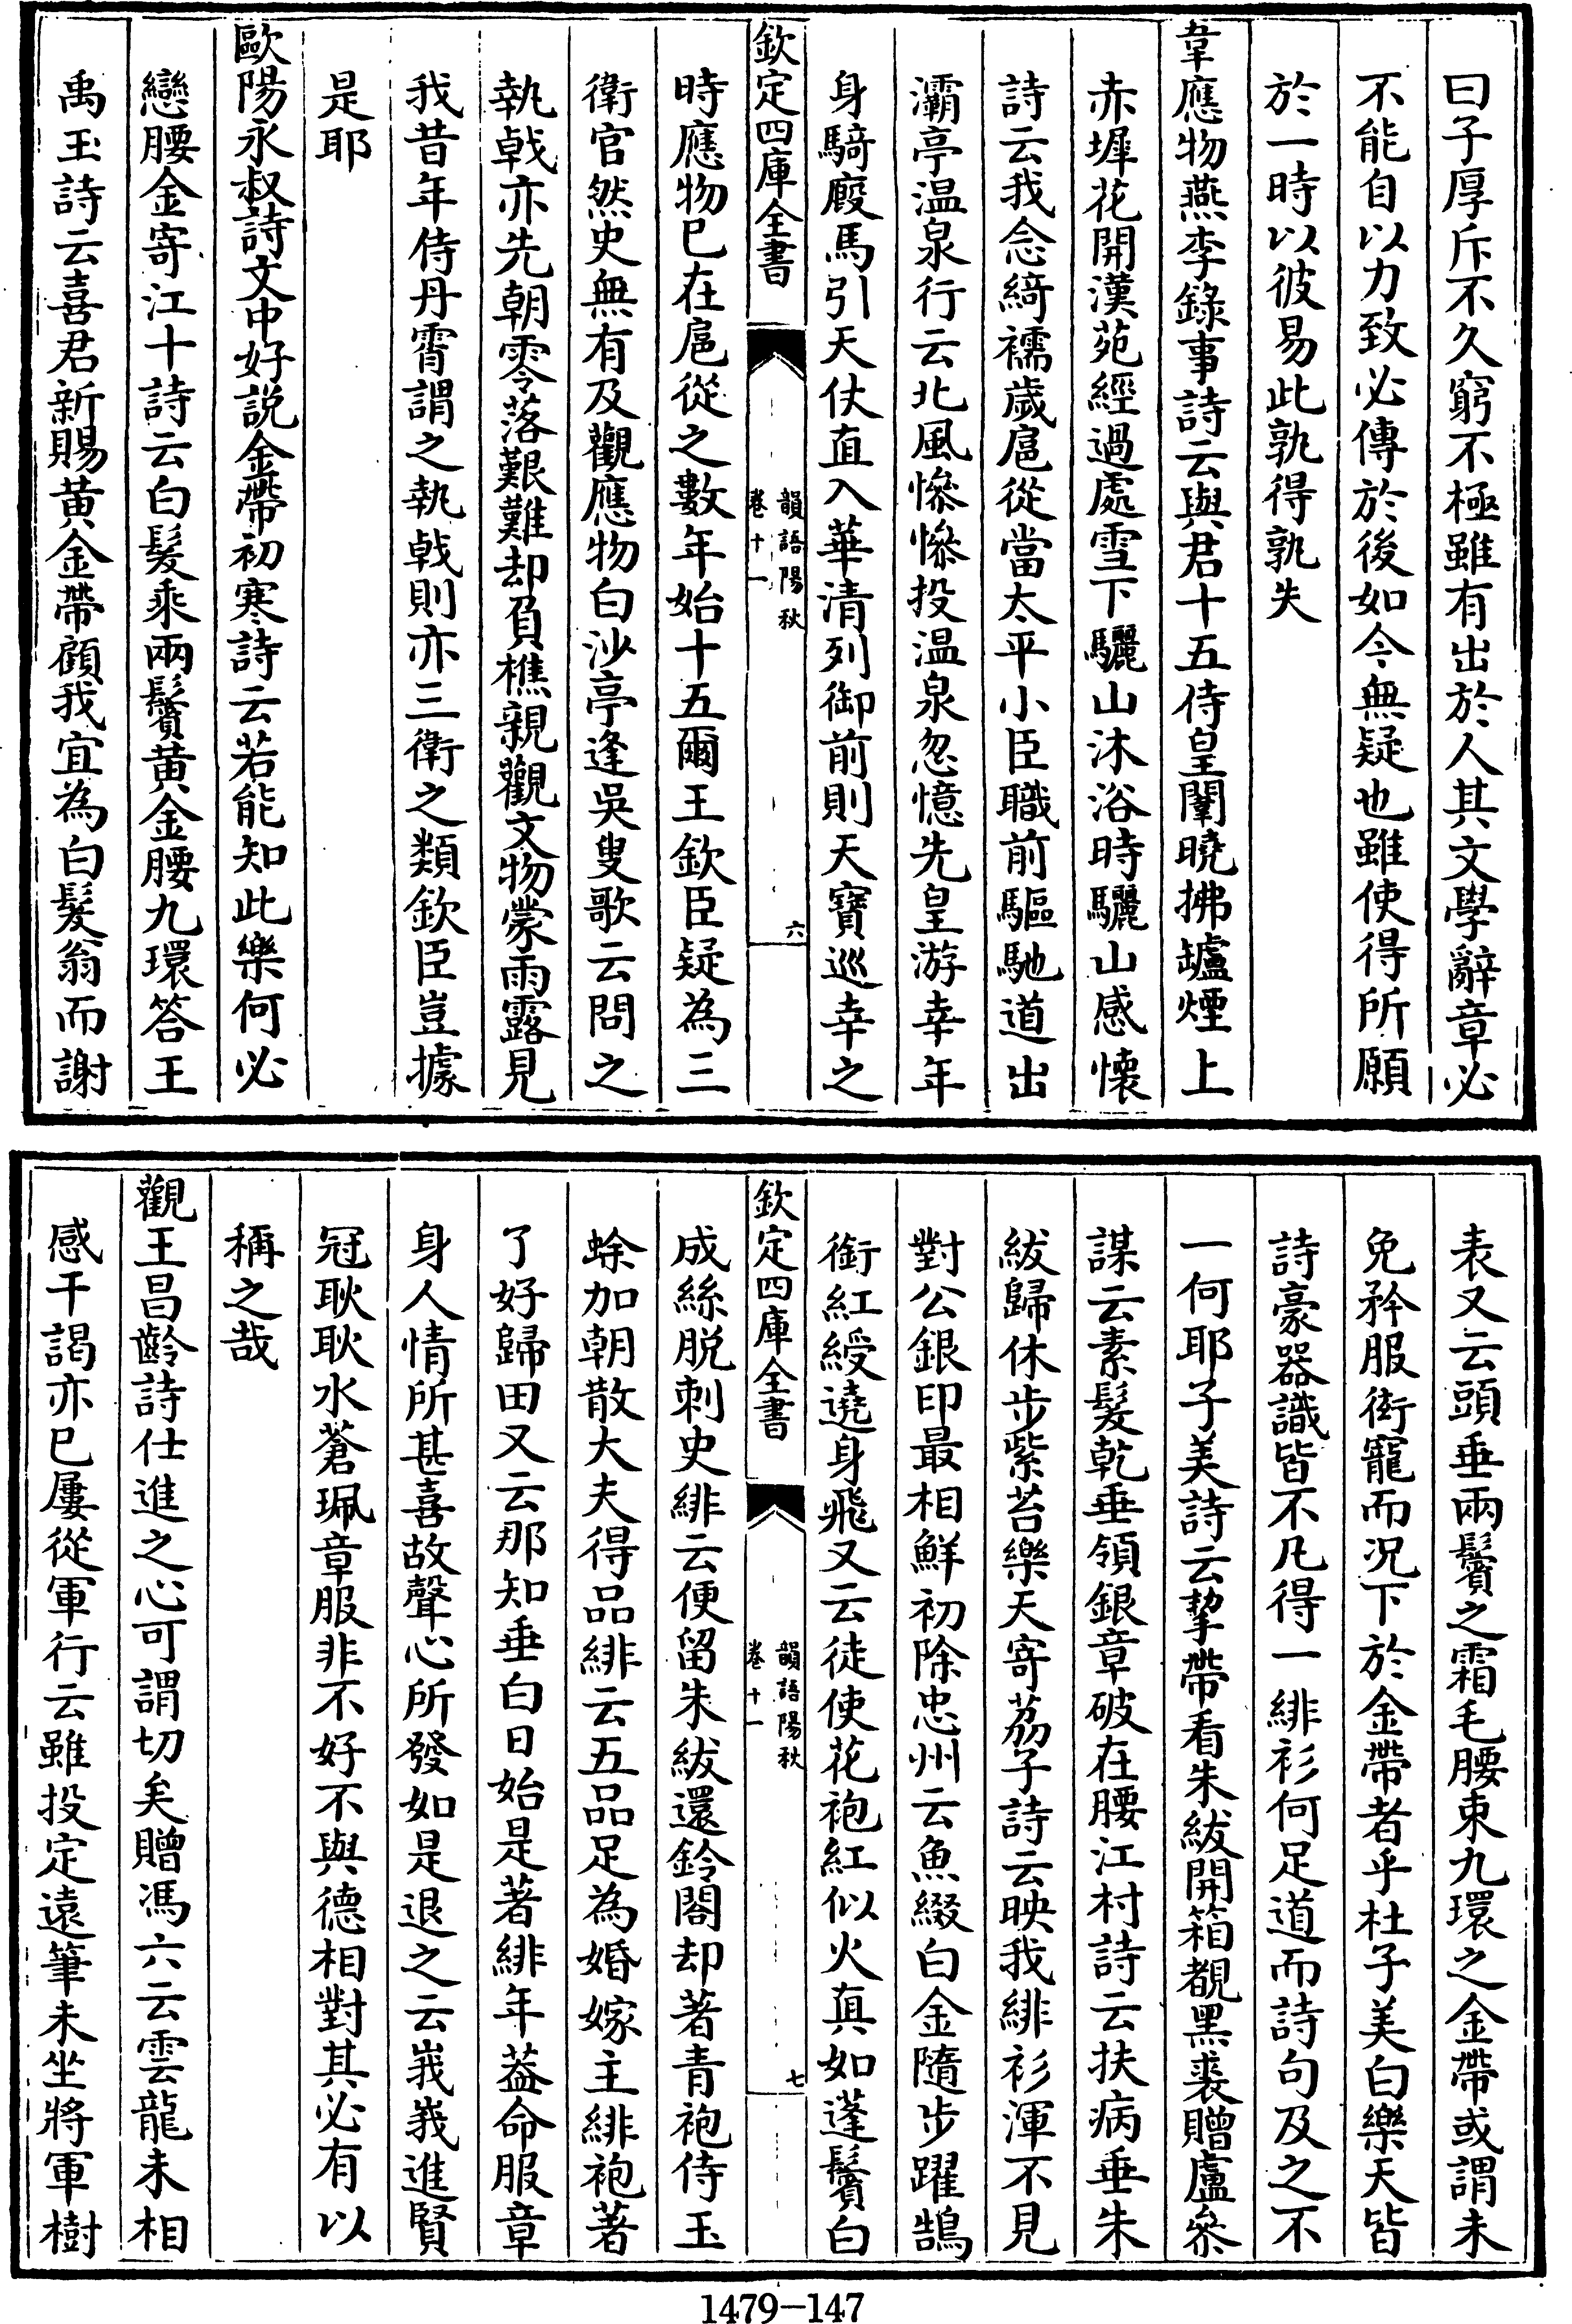 曰子厚斥不久窮不極雖有出於人其文學辭章必
不能自以力致必傳於後如今無疑也雖使得所願
於一時以彼易此孰得孰失
韋應物燕李錄事詩云與君十五侍皇闈曉拂壚煙上
赤墀花開漢苑經過處雪下驪山沐浴時驪山感懷
詩云我念綺襦歲扈從當太平小臣職前驅馳道出
灞亭温泉行云北風慘慘投温泉忽憶先皇游幸年
身騎廄馬引天仗直入華清列御前則天寶巡幸之
欽定四庫全書
韻語陽秋
卷十一
六
時應物已在扈從之數年始十五爾王欽臣疑為三
衛官然史無有及觀應物白沙亭逢吳叟歌云問之
執戟亦先朝零落艱難却負樵親觀文物蒙雨露見
我昔年侍丹霄謂之執戟則亦三衛之類欽臣豈據
是耶
歐陽永叔詩文中好説金帶初寒詩云若能知此樂何必
戀腰金寄江十詩云白髮乘兩鬢黄金腰九環答王
禹玉詩云喜君新賜黄金帶顧我宜為白髮翁而謝
表又云頭垂兩鬢之霜毛腰束九環之金帶或謂未
免矜服衒寵而况下於金帶者乎杜子美白樂天皆
詩豪器識皆不凡得一緋衫何足道而詩句及之不
一何耶子美詩云挈帶看朱紱開箱覩黑裘贈盧參
謀云素髮乾垂領銀章破在腰江村詩云扶病垂朱
紱歸休步紫苔樂天寄荔子詩云映我緋衫渾不見
對公銀印最相鮮初除忠州云魚綴白金隨步躍鵠
銜紅綬遶身飛又云徒使花袍紅似火真如蓬鬢白
欽定四庫全書
韻語陽秋
卷十一
七
成絲脱刺史緋云便留朱紱還鈴閣却著青袍侍玉
蜍加朝散大夫得品緋云五品足為婚嫁主緋袍著
了好歸田又云那知垂白日始是著緋年葢命服章
身人情所甚喜故聲心所發如是退之云峩峩進賢
冠耿耿水蒼珮章服非不好不與德相對其必有以
稱之哉
觀王昌齡詩仕進之心可謂切矣贈馮六云雲龍未相
感干謁亦已屢從軍行云雖投定遠筆未坐將軍樹
1479-147